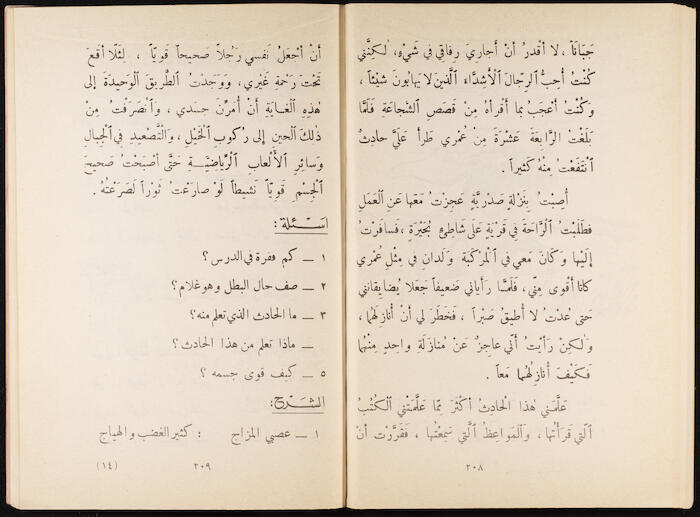 جَبَاناً ، لا أقدرُ أنْ أجاريَ رفاقي في شَيْءٍ، لكِنَّني
كُنْتُ أُحِبُّ ٱلرِّجالَ ٱلْأشِدَّاءَ ٱلَّذينَ لا يَهابُونَ شَيْئاً ،
وَكُنْتُ أعْجَبُ بما أقْرأهُ مِنْ قِصَصِ الشَّجاعَةِ فَلَمَّا
بَلَغْتُ ٱلرَّابعَةَ عَشْرَةَ مِنْ عُمْري طَرأ عَلَيَّ حادِثٌ
ٱنْتَفَعْتُ مِنْهُ كَثيراً .
أُصِبْتُ بِنَزْلَةٍ صَدْرِيَّةٍ عَجِزْتُ مَعَها عَنِ ٱلْعَمَلِ
فَطَلَبْتُ ٱلْرَّاحَةَ في قَرْيَةٍ عَلَى شاطِئِ بُحَيْرَةٍ ، فَسافَرْتُ
إلَيْها وَكانَ مَعي في ٱلْمَرْكَبَةِ وَلَدانِ في مِثْلِ عُمْري
كانا أقْوى مِنّي، فَلَمَّا رَأياني ضَعيفاً جَعَلا يُضايِقانني
حَتى عُدْتُ لا أطيقُ صَبْراً ، فَخَطَرَ لي أنْ أُنازِلَهُما ،
وَلكِنْ رَأيْتُ أنّي عاجِزٌ عَنْ مُنازَلَةِ واحِدٍ مِنْهُما
فَكَيْفَ أُنازِلُهُما مَعاً .
عَلَّمَني هٰذا ٱلْحادِثُ أكْثَرَ مِمَّا عَلَّمَتْني ٱلْكُتُبُ
ٱلَّتي قَرَأْتُها ، وَٱلْمَواعِظُ ٱلَّتي سَمِعْتُها ، فَقَرَّرْتُ أنْ
٢٠٨
أنْ أجْعَلَ نَفْسي رَجُلاً صَحيحاً قَويّاً ، لِئَلَّا أقَعَ
تَحْتَ رَحْمَةِ غَيْري، وَوَجَدْتُ ٱلطَّريقَ ٱلْوَحيدَةَ إلى
هٰذِهِ ٱلْغـايَةِ أنْ أُمَرِّنَ جَسَدي ، وَٱنْصَرَفْتُ مِنْ
ذلِكَ ٱلْحين إلى رُكوبِ ٱلْخَيْلِ ، وَٱلتَّصْعيدِ في ٱلْجِبالِ
وَسائِرِ ٱلْألْعابِ ٱلْرِّياضِيَّـةِ حَتَّى أصْبَحْتُ صَحيحَ
ٱلْجِسْمِ قَوِيّاً نَشيطاً لَوْ صارَعْتُ ثَوْراً لَصَرَعْتُهُ .
اسـئلة :
١ – كم فقرة في الدرس ؟
٢ – صف حال البطل وهو غلام ؟
٣ – ما الحادث الذي تعلم منه ؟
– ماذا تعلم من هذا الحادث ؟
٥ – كيف قوى جسمه ؟
الشـرح :
١ – عصبي المزاج : كثير الغضب والهياج
٢٠٩ (١٤)